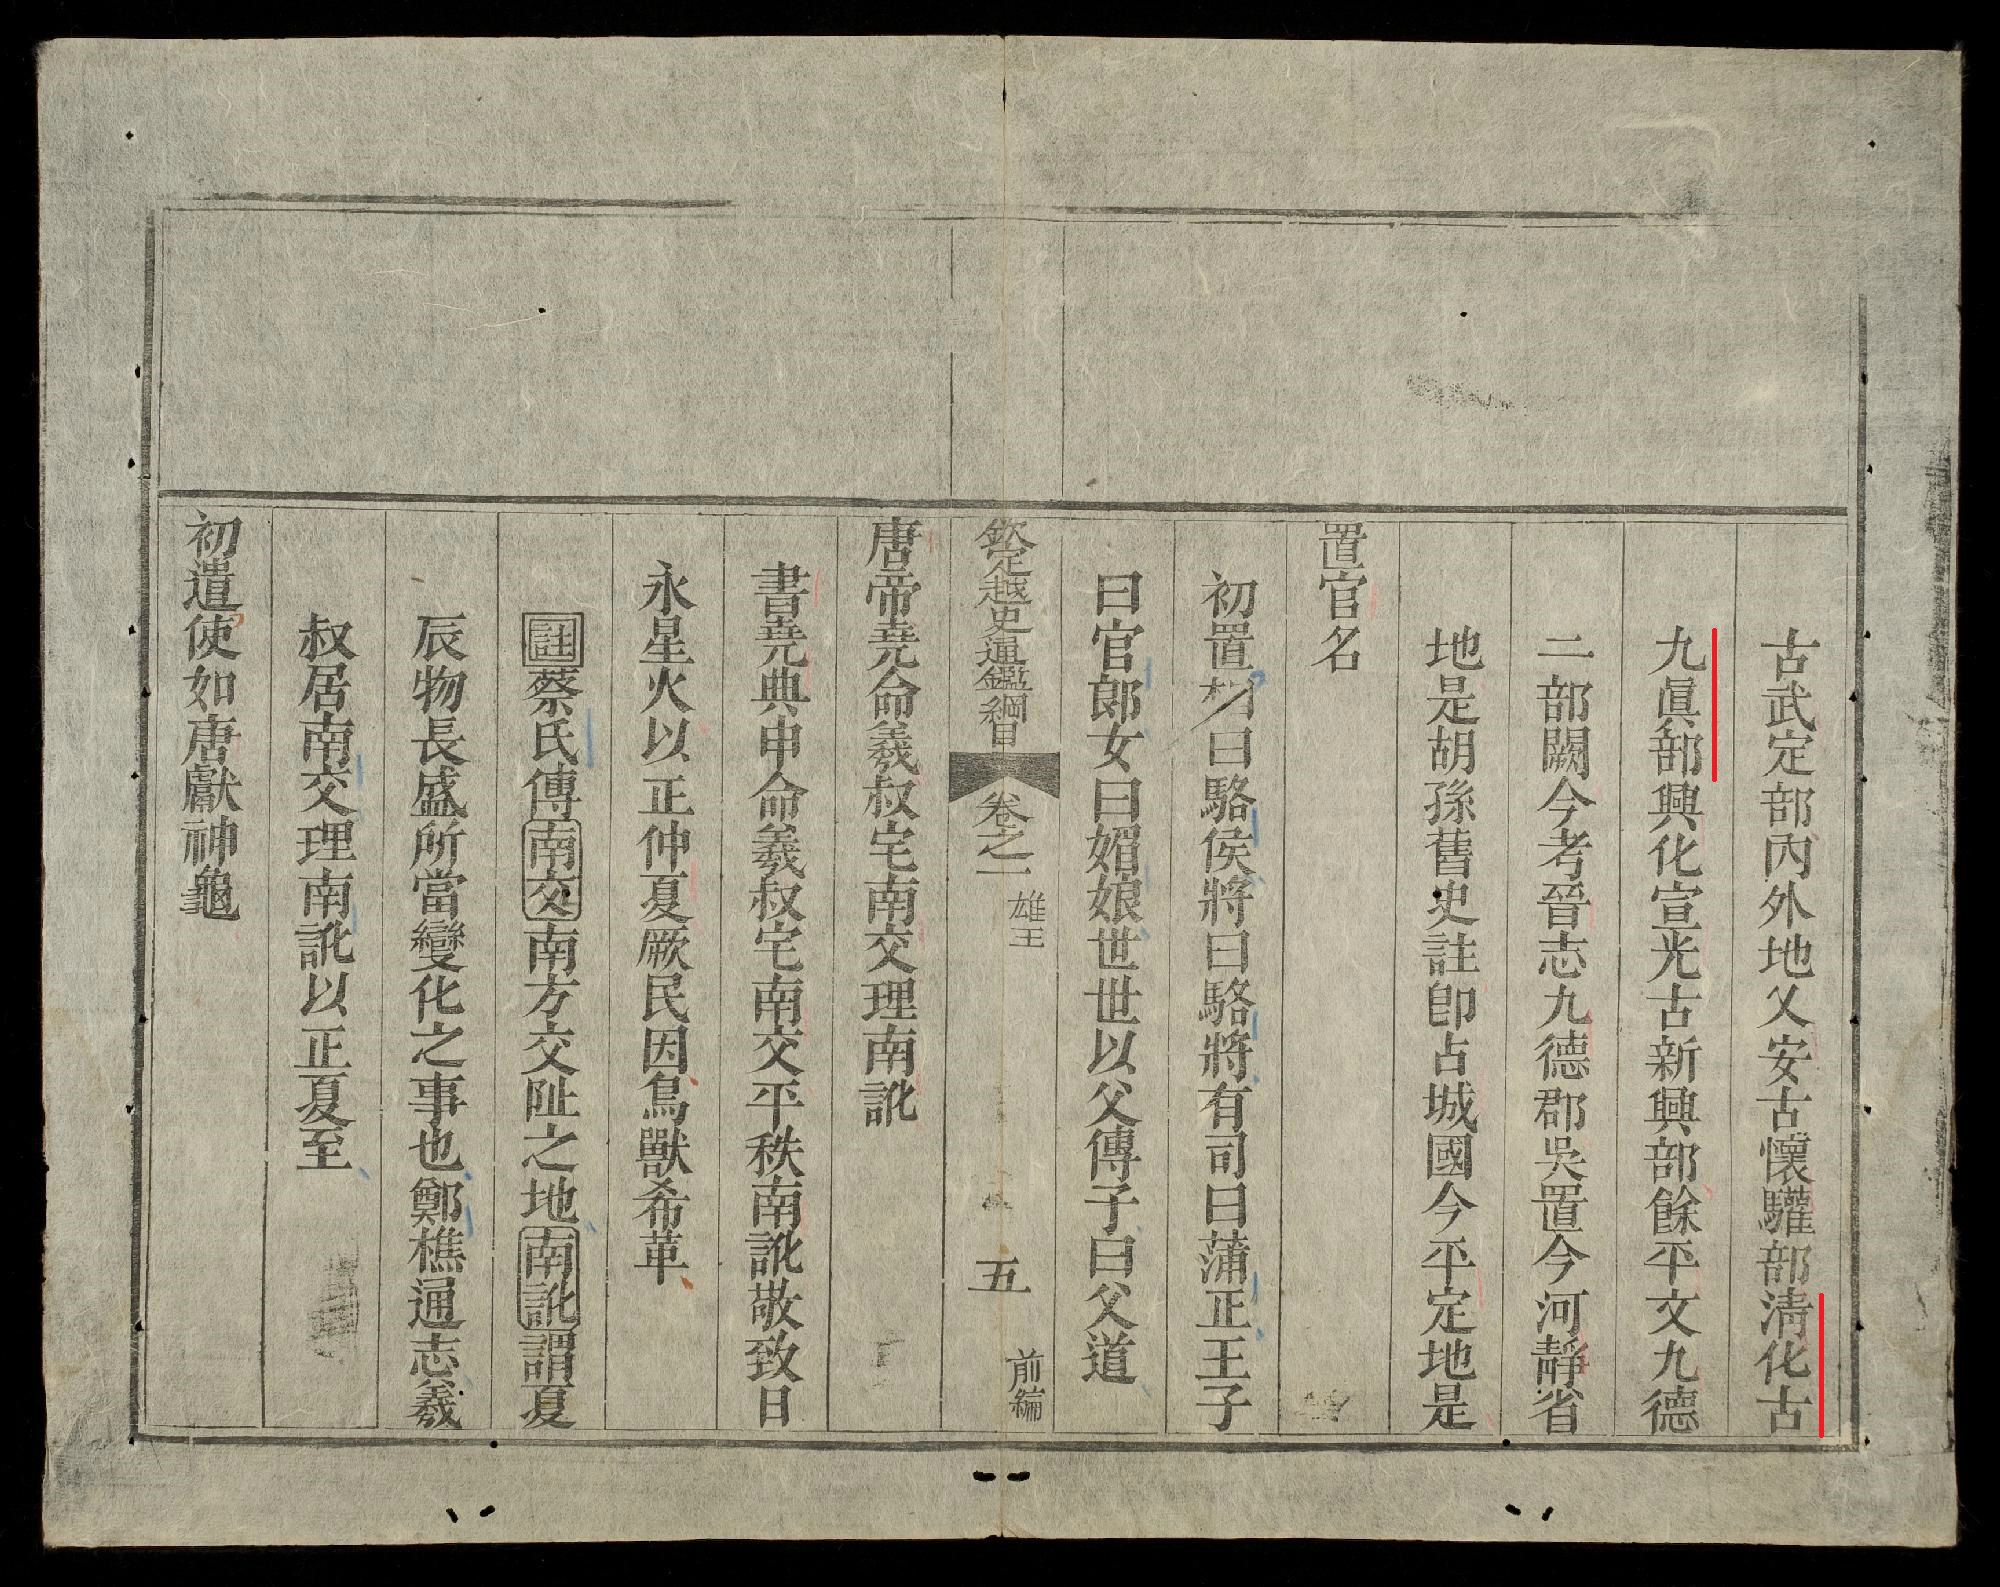 古武定部內外地乂安古懷驩部淸化古
九眞部興化宣光古新興部餘平文九德
二部闕今考晉志九德郡吳置今河靜省
地是胡孫舊史註卽占城國今平定地是
置官名
初置相曰駱侯將曰駱將有司曰蒲正王子
曰官郞女曰媚娘世世以父傳子曰父道
欽定越史通鑑綱目 卷之一 雄王 五 前編
唐帝堯命羲叔宅南交理南訛
書堯典申命羲叔宅南交平秩南訛敬致日
永星火以正仲夏厥民因鳥獸希革
註蔡氏傳南交南方交趾之地南訛謂夏
辰物長盛所當變化之事也鄭樵通志羲
叔居南交理南訛以正夏至
初遣使如唐獻神龜